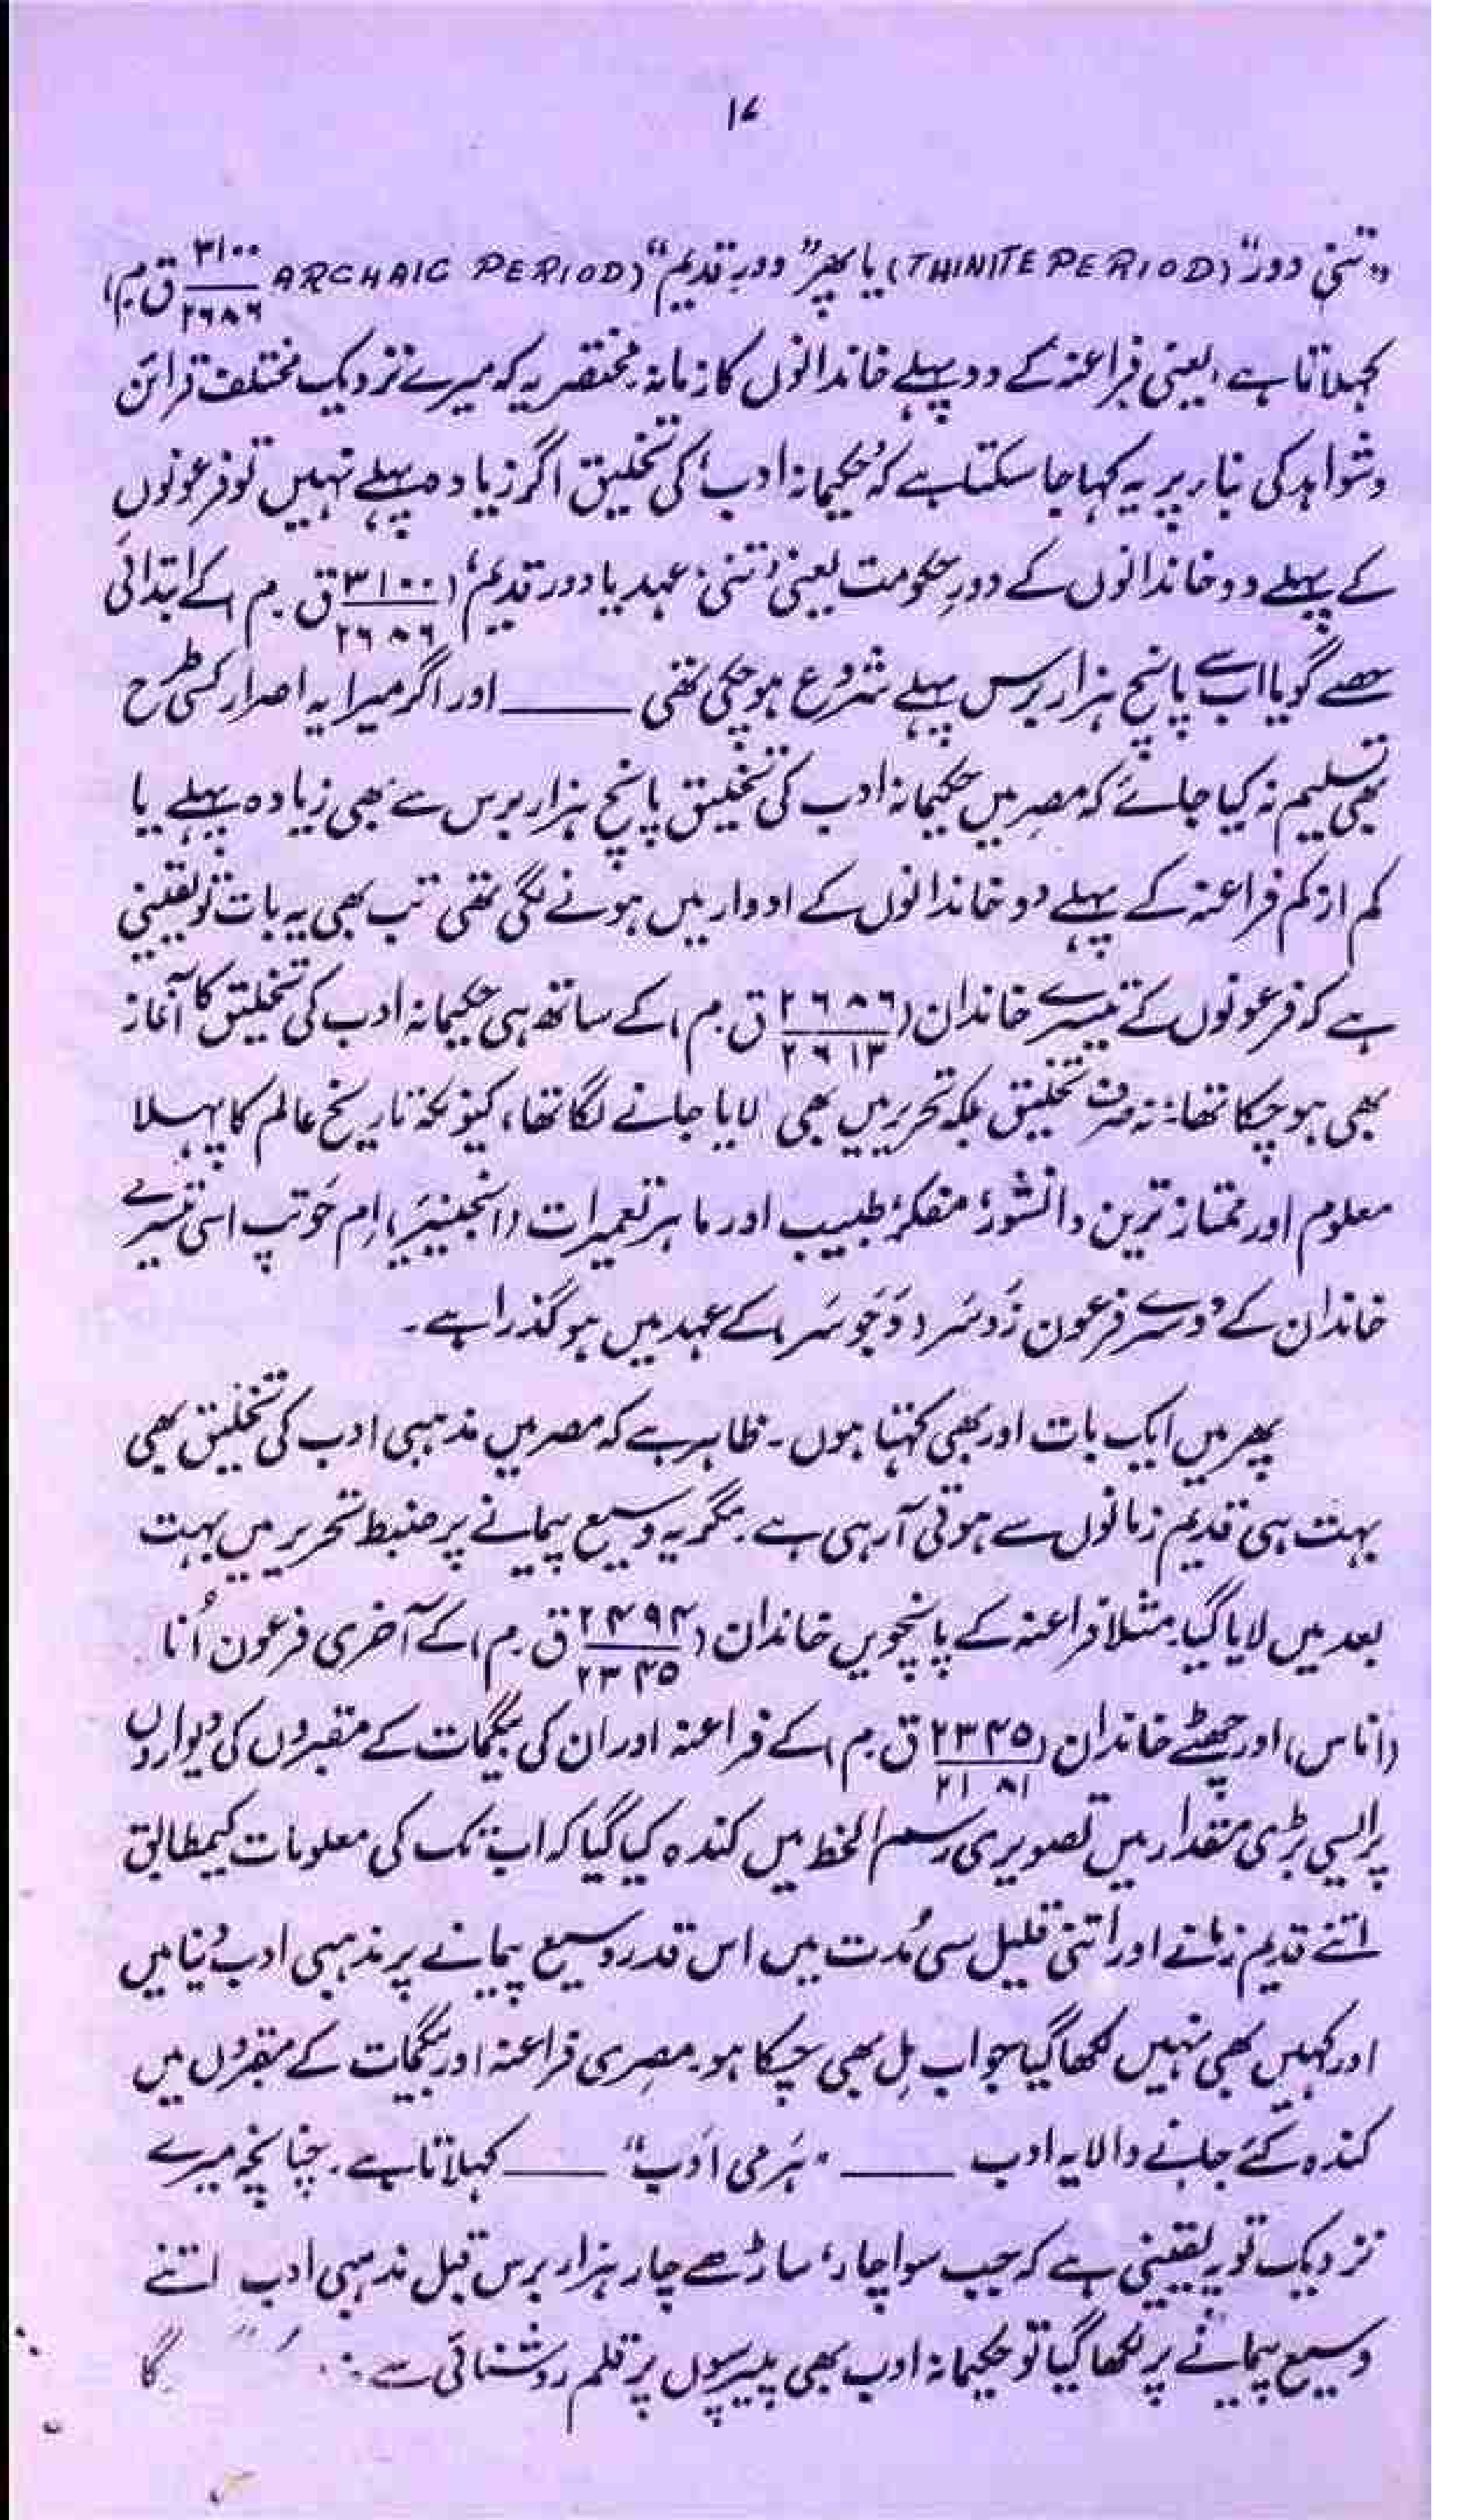 ۱۷
"تنی دور" (THINITE PERIOD) یا پھر "دورِ قدیم" (ARCHAIC PERIOD ۳۱۰۰/۲۶۸۶ ق م)
کہلاتا ہے، یعنی فراعنہ کے دو پہلے خاندانوں کا زمانہ۔ مختصر یہ کہ میرے نزدیک مختلف قرائن
و شواہد کی بنا پر یہ کہا جا سکتا ہے کہ 'حکیمانہ ادب' کی تخلیق اگر زیادہ پہلے نہیں تو فرعونوں
کے پہلے دو خاندانوں کے دورِ حکومت یعنی 'تنی' عہد یا دور قدیم' (۳۱۰۰/۲۶۸۶ ق۔م) کے ابتدائی
حصے گویا اب سے پانچ ہزار برس پہلے شروع ہو چکی تھی ——— اور اگر میرا یہ اصرار کسی طرح
بھی تسلیم نہ کیا جائے کہ مصر میں حکیمانہ ادب کی تخلیق پانچ ہزار برس سے بھی زیادہ پہلے یا
کم از کم فراعنہ کے پہلے دو خاندانوں کے ادوار میں ہونے لگی تھی تب بھی یہ بات تو یقینی
ہے کہ فرعونوں کے تیسرے خاندان (۲۶۸۶/۲۶۱۳ ق۔م) کے ساتھ ہی حکیمانہ ادب کی تخلیق کا آغاز
بھی ہو چکا تھا؛ نہ صرف تخلیق بلکہ تحریر میں بھی لایا جانے لگا تھا، کیونکہ تاریخ عالم کا پہلا
معلوم اور ممتاز ترین دانشور، مفکر، طبیب اور ماہر تعمیرات (انجینیئر) اِم حَوتپ اسی تیسرے
خاندان کے دوسرے فرعون زَوسَر (وَجَوسَر) کے عہد میں ہو گذرا ہے۔
پھر میں ایک بات اور بھی کہتا ہوں۔ ظاہر ہے کہ مصر میں مذہبی ادب کی تخلیق بھی
بہت ہی قدیم زمانوں سے ہوتی آ رہی ہے۔ مگر یہ وسیع پیمانے پر ضبط تحریر میں بہت
بعد میں لایا گیا۔ مثلاً فراعنہ کے پانچویں خاندان (۲۴۹۴/۲۳۴۵ ق۔م) کے آخری فرعون اُنا
(اناس) اور چھٹے خاندان (۲۳۴۵/۲۱۸۱ ق۔م) کے فراعنہ اور ان کی بیگمات کے مقبروں کی دیواروں
پر ایسی بڑی مقدار میں تصویری رسم الخط میں کندہ کیا گیا کہ اب تک کی معلومات کیمطابق
اتنے قدیم زمانے اور اتنی قلیل سی مُدت میں اس قدر وسیع پیمانے پر مذہبی ادب دُنیا میں
اور کہیں بھی نہیں لکھا گیا جو اب مِل بھی چکا ہو۔ مصری فراعنہ اور بیگمات کے مقبروں میں
کندہ کئے جانے والا یہ ادب ——— "ہَرمی اَدب" ——— کہلاتا ہے۔ چنانچہ میرے
نزدیک تو یہ یقینی ہے کہ جب سوا چار، ساڑھے چار ہزار برس قبل مذہبی ادب اتنے
وسیع پیمانے پر لکھا گیا تو حکیمانہ ادب بھی پیپرسوں پر قلم روشنائی سے گا